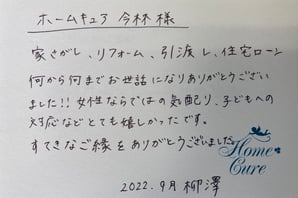 ホームキュア 今林様
家さがし、リフォーム、引渡し、住宅ローン
何から何までお世話になりありがとうござい
ました!! 女性ならではの気配り、子どもへの
対応などとても嬉しかったです。
すてきなご縁をありがとうございました。
Home
Cure
2022.9月 柳澤